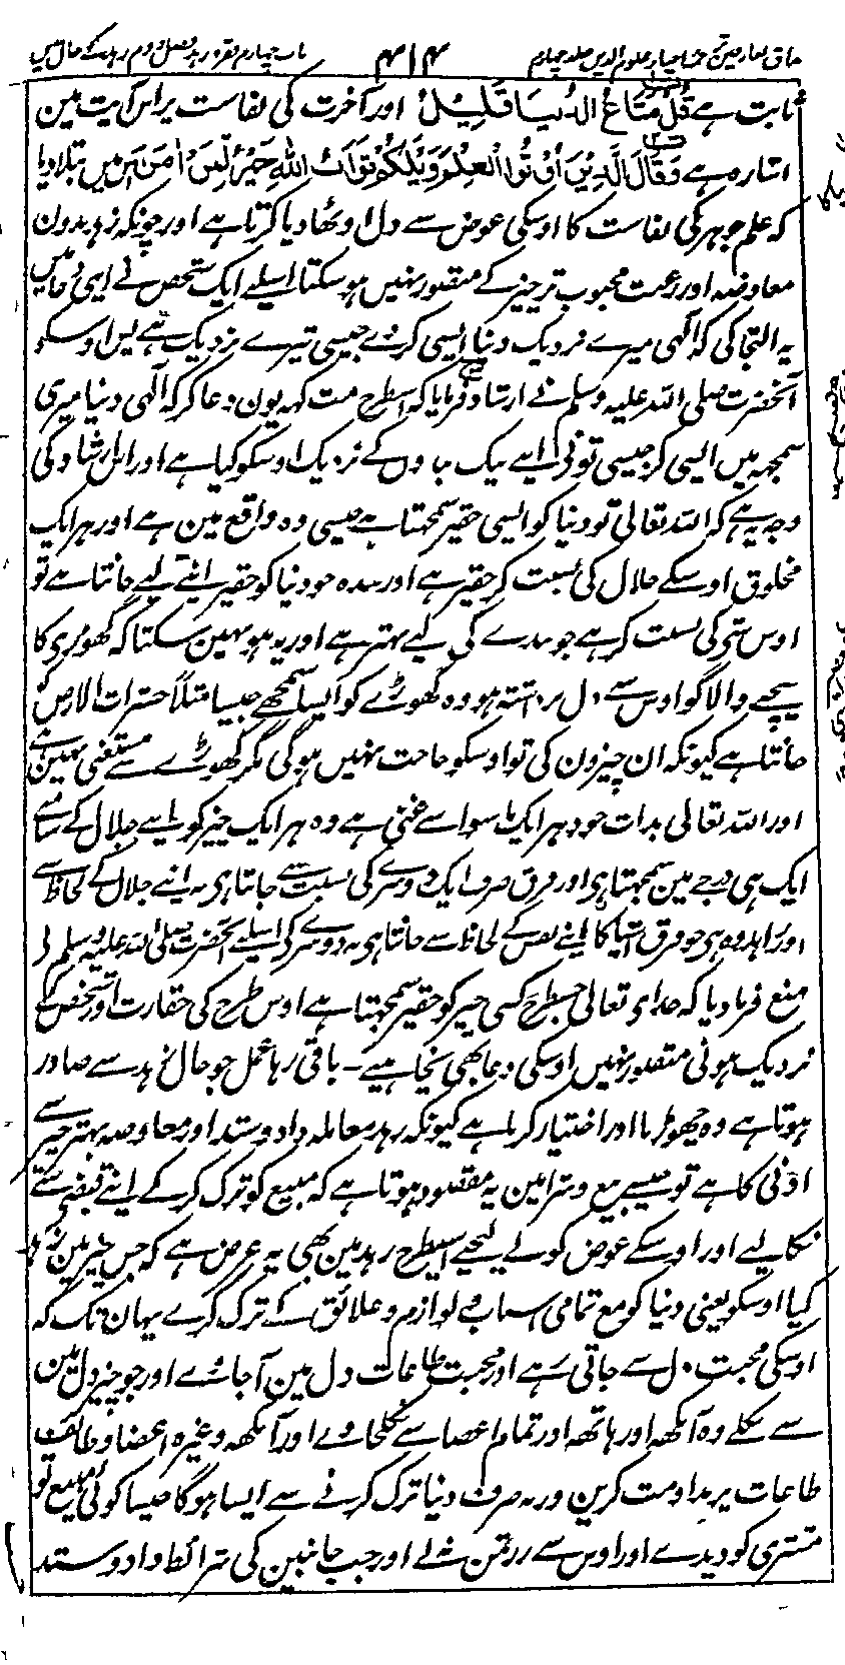 مذاق العارفین ترجمہ احیاء علوم الدین جلد چہارم ۴۱۴ باب چہارم فقر و زہد فصل دوم زہد کے حال میں
ثابت ہے قُلْ مَتَاعُ الدُّنْيَا قَلِيْلٌ اور آخرت کی نفاست پر اس آیت مین
اشارہ ہے وَقَالَ الَّذِيْنَ أُوْتُوا الْعِلْمَ وَيْلَكُمْ ثَوَابُ اللهِ خَيْرٌ لِّمَنْ اٰمَنَ اس میں بتلا دیا
کہ علم جوہر کی نفاست کا اوسکی عوض سے دل اوٹھا دیا کرتا ہے اور چونکہ زہد بدون
معاوضہ اور رغبت محبوب تر چیز کے متصور نہیں ہو سکتا اسلیے ایک شخص نے اپنی دعا میں
یہ التجا کی کہ الٰہی میرے نزدیک دنیا ایسی کر دے جیسی تیرے نزدیک ہے پس اوسکو
آنحضرت صلی اللہ علیہ وسلم نے ارشاد فرمایا کہ اسطرح مت کہہ یون دعا کر کہ الٰہی دنیا میری
سمجھ میں ایسی کر جیسی تو نے اپنے نیک بندوں کے نزدیک اوسکو کیا ہے اور اس ارشاد کی
وجہ یہ ہے کہ اللہ تعالی تو دنیا کو ایسی حقیر سمجھتا ہے جیسی وہ واقع مین ہے اور ہر ایک
مخلوق اوسکے جلال کی نسبت کر حقیر ہے اور بندہ جو دنیا کو حقیر اپنے لیے جانتا ہے تو
اوس شی کی نسبت کر ہے جو بندے کی لیے بہتر ہے اور یہ ہو نہین سکتا کہ گھوڑی کا
بیچنے والا گو اوس سے دل برداشتہ ہو وہ گھوڑے کو ایسا سمجھے جیسا مثلاً حشرات الارض کو
جانتا ہے کیونکہ ان چیزون کی تو اوسکو حاجت نہیں ہوگی مگر گھوڑے سے مستغنی نہین ہے
اور اللہ تعالی بذات خود ہر ایک ماسوا سے غنی ہے وہ ہر ایک چیز کو اپنے جلال کے سامنے
ایک ہی درجے مین سمجھتا ہی اور فرق صرف ایک دوسرے کی نسبت سے جانتا ہی نہ اپنے جلال کے لحاظ سے
اور زاہد وہ ہی جو فرق اشیا کا اپنے نفس کے لحاظ سے جانتا ہی نہ دوسرے کے اسلیے آنحضرت صلی اللہ علیہ وسلم نے
منع فرما دیا کہ خدای تعالی جسطرح کسی چیز کو حقیر سمجھتا ہے اوس طرح کی حقارت اور شخص کے
نزدیک ہونی متصور نہیں اوسکی دعا بھی نچاہیے - باقی رہا عمل جو حال زہد سے صادر
ہوتا ہے وہ چھوڑنا اور اختیار کرنا ہے کیونکہ زہد معاملہ داد و ستد اور معاوضہ بہتر چیز سے
ادنی کا ہے تو جیسے بیع و شرا مین یہ مقصود ہوتا ہے کہ مبیع کو ترک کر کے اپنے قبضے سے
نکالیے اور اوسکے عوض کو لے لیجیے اسیطرح زہد مین بھی یہ غرض ہے کہ جس چیز مین زہد
کیا اوسکو یعنی دنیا کو مع تمامی اسباب و لوازم و علائق کے ترک کرے یہان تک کہ
اوسکی محبت دل سے جاتی رہے اور محبت طاعات دل مین آجاوے اور جو چیز دل مین
سے نکلے وہ آنکھ اور ہاتھ اور تمام اعضا سے نکلجاوے اور آنکھ وغیرہ اعضا وظائف
طاعات پر مداومت کرین ورنہ صرف دنیا ترک کرنے سے ایسا ہوگا جیسا کوئی مبیع تو
مشتری کو دیدے اور اوس سے زر ثمن نہ لے اور جب جانبین کی شرائط داد و ستد